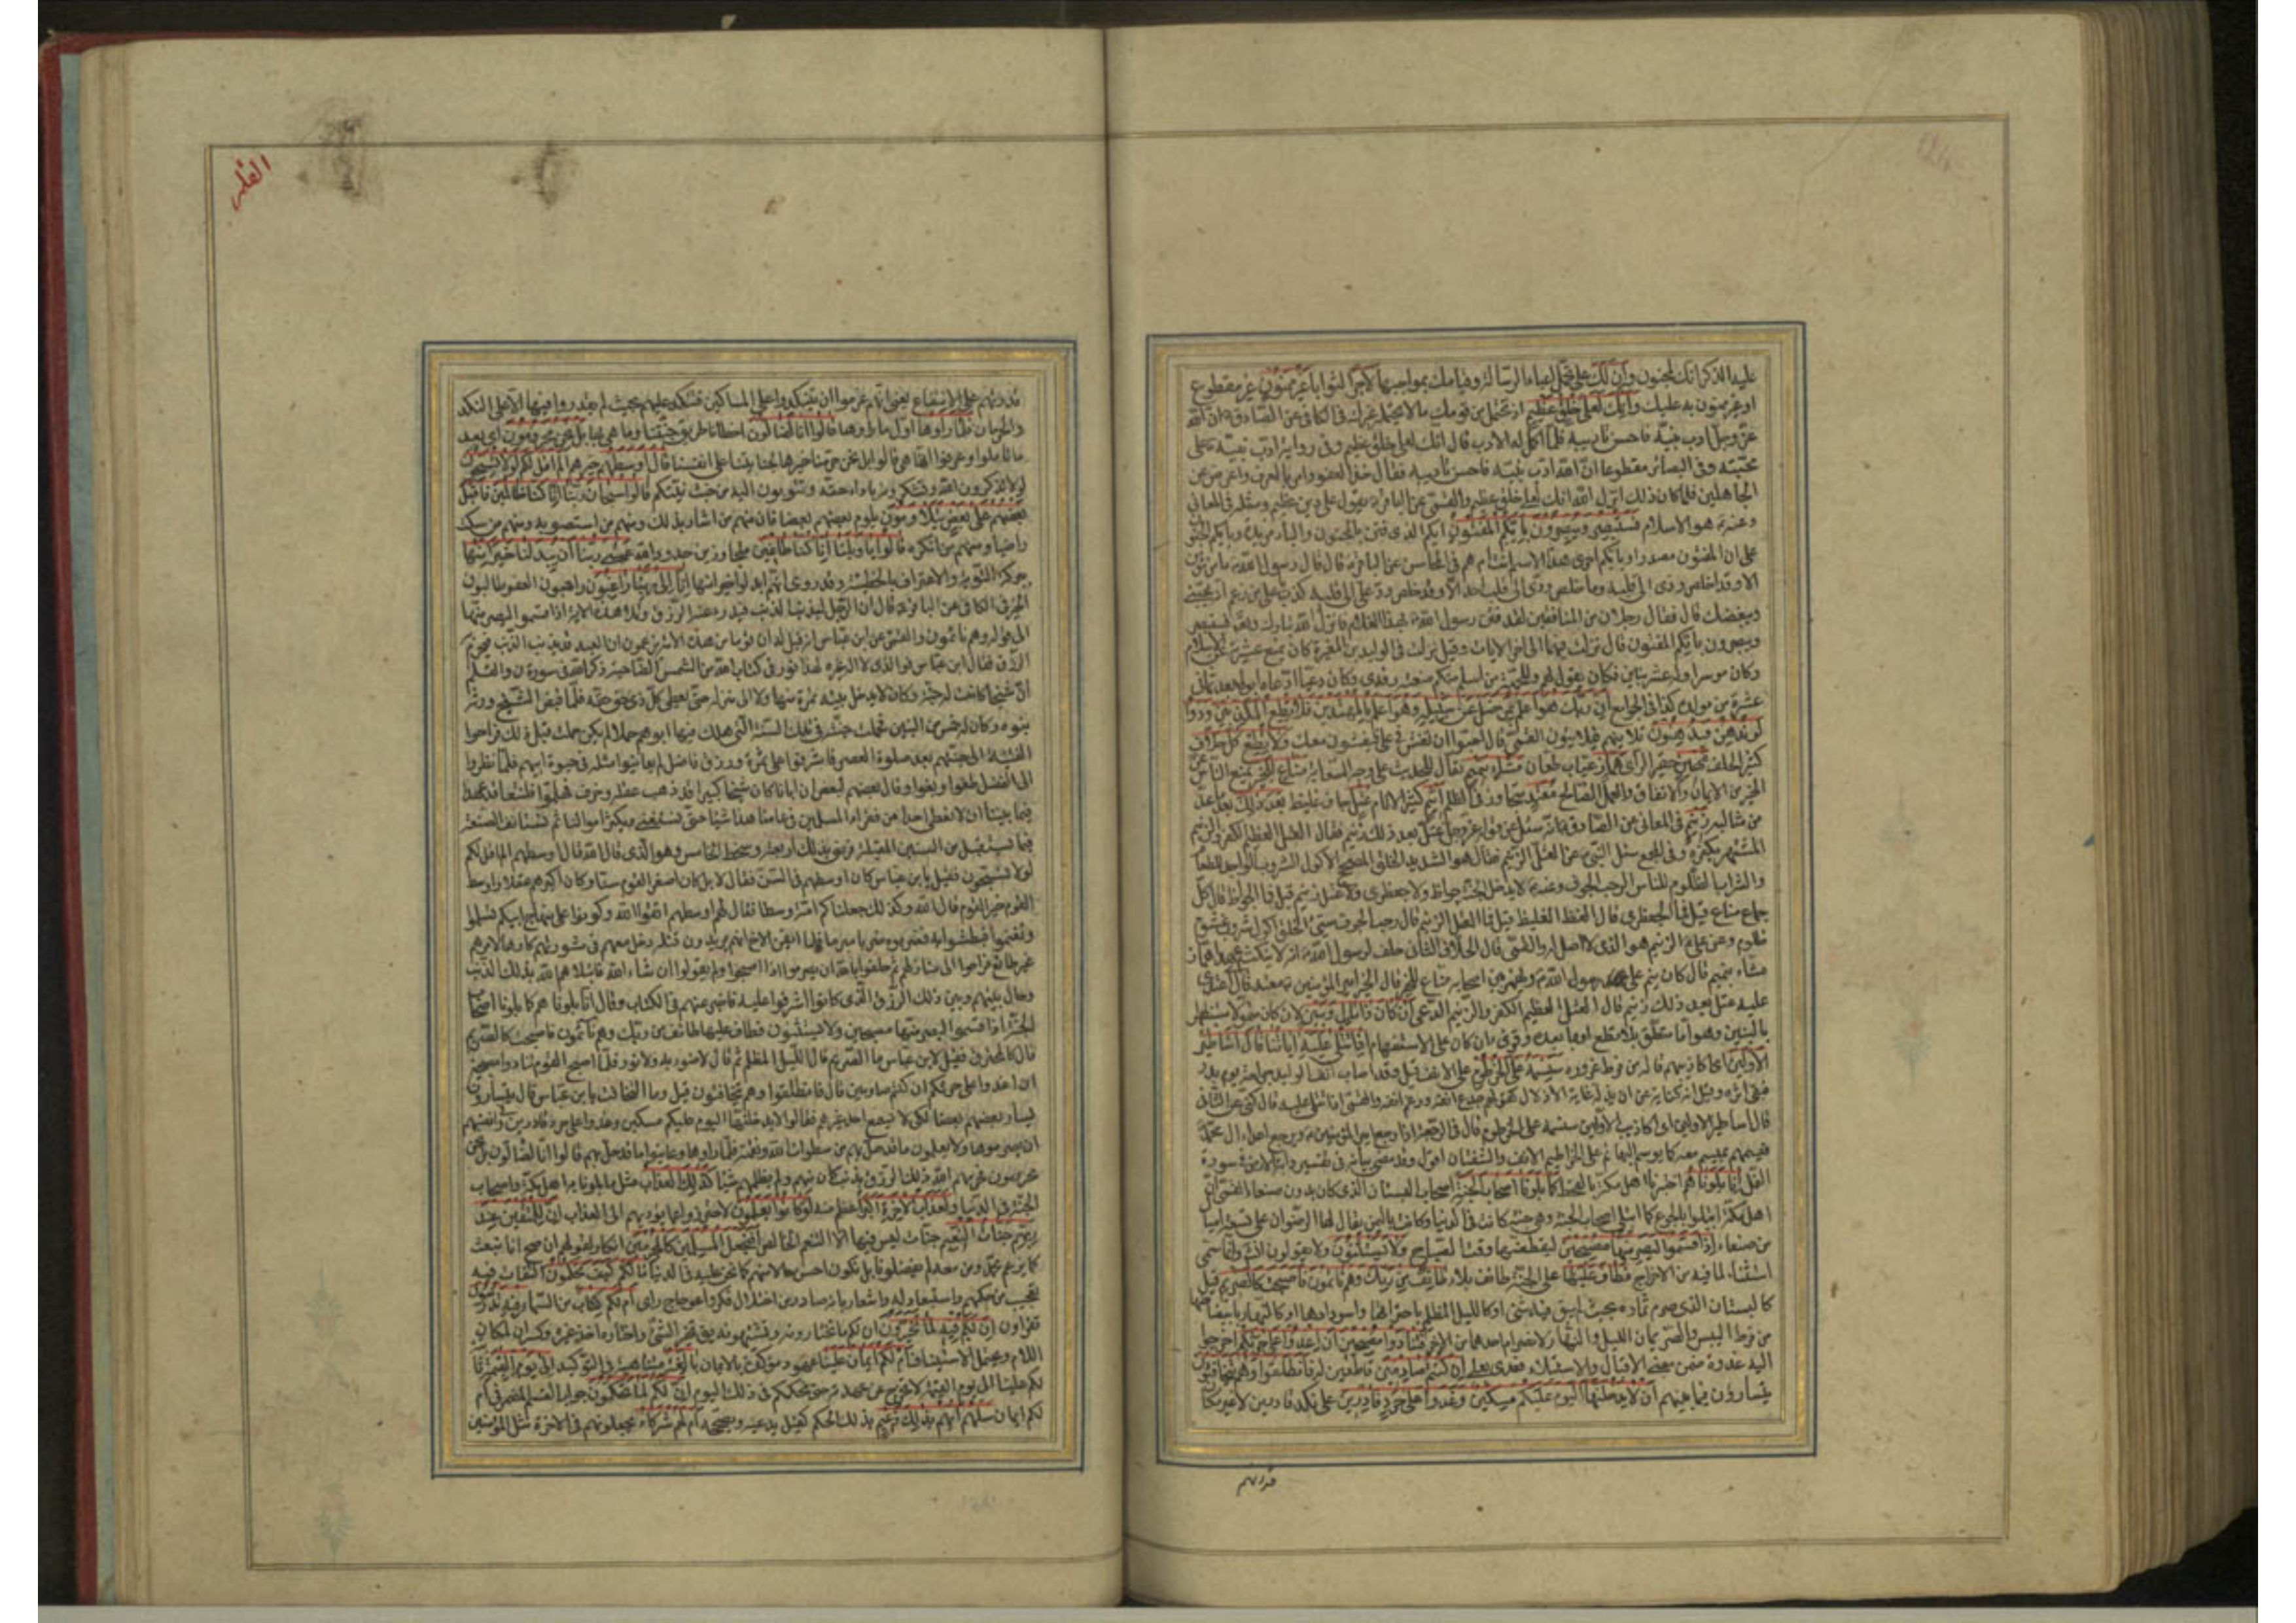 عليه الذكر انك لمجنون وان لك على تحمل اعباء الرسالة وقيامك بمواجبها لأجرا لثوابا غير ممنون غير مقطوع
او غير ممنون به عليك وانك لعلى خلق عظيم اذ تحتمل من قومك ما لا يحتمله غيرك في الكافي عن الصادق ان الله
عز وجل ادب نبيه فاحسن تأديبه فلما اكمل له الادب قال انك لعلى خلق عظيم وفي رواية ادب نبيه على
محبته وفي البصائر مقطوعا ان الله ادب نبيه فاحسن تأديبه فقال خذ العفو وامر بالعرف واعرض عن
الجاهلين فلما كان ذلك انزل الله انك لعلى خلق عظيم والقمي عن الباقر يقول على دين عظيم ومثله في المعاني
وعنه هو الاسلام فستبصر ويبصرون بايكم المفتون ايكم الذي فتن بالجنون والباء مزيدة او بايكم الجنون
على ان المفتون مصدر او باي
الا وقد خلص ودي الى قلبه وما خلص ودي الى قلب احد الا وقد خلص ود علي الى قلبه كذب يا علي من زعم انه يحبني
ويبغضك قال فقال رجلان من المنافقين لقد فتن رسول الله بهذا الغلام فانزل الله تبارك وتعالى فستبصر
ويبصرون بايكم المفتون قال نزلت فيهما الى اخر الايات وقيل نزلت في الوليد بن المغيرة كان يمنع عشيرته عن الاسلام
وكان موسرا وله عشر بنين فكان يقول لهم وللحمته من اسلم منكم منعته رفدي وكان دعيا ادعاه ابوه بعد ثماني
عشرة من مولده كذا في الجوامع ان ربك هو اعلم بمن ضل عن سبيله وهو اعلم بالمهتدين فلا تطع المكذبين ودوا
لو تدهن فيدهنون تلاينهم فيلاينون القمي قال احبوا ان تغش في علي فيغشون معك ولا تطع كل حلاف
كثير الحلف مهين حقير الرأي هماز عياب طعان مشاء بنميم نقال للحديث على وجه السعاية مناع للخير يمنع الناس عن
الخير من الايمان والانفاق والعمل الصالح معتد متجاوز في الظلم اثيم كثير الاثام عتل جاف غليظ بعد ذلك بعد ما عد
من مثالبه زنيم في المعاني عن الصادق انه سئل عن قوله عز وجل عتل بعد ذلك زنيم فقال العتل العظيم الكفر والزنيم
المستهتر بكفره وفي المجمع سئل النبي عن العتل الزنيم فقال هو الشديد الخلق المصحح الاكول الشروب الواجد للطعام
والشراب الظلوم للناس الرحب الجوف وعنه لا يدخل الجنة جواظ ولا جعظري ولا عتل زنيم قيل فما الجواظ قال كل
جماع مناع قيل فما الجعظري قال الفظ الغليظ قيل فما العتل الزنيم قال رحب الجوف سيئ الخلق اكول شروب غشوم
ظلوم وعن علي الزنيم هو الذي لا اصل له والقمي قال الحلاف الثاني حلف لرسول الله انه لا ينكث عهدا هماز
مشاء بنميم قال كان ينم على رسول الله ويهمز بين اصحابه مناع للخير قال الخير امير المؤمنين معتد قال اعتدى
عليه عتل بعد ذلك زنيم قال العتل العظيم الكفر والزنيم الدعي ان كان ذا مال وبنين لان كان متمولا مستظهرا
بالبنين وهو اما متعلق بلا تطع او بما بعده وقرئ ءان كان على الاستفهام اذا تتلى عليه اياتنا قال اساطير
الاولين اي اكاذيبهم قاله من فرط غروره سنسمه على الخرطوم على الانف قيل وقد اصاب انف الوليد جراحة يوم بدر
فبقي اثره وقيل انه كناية عن ان يذله غاية الاذلال كقولهم جدع انفه ورغم انفه والقمي اذا تتلى عليه قال كنى عن الثاني
قال اساطير الاولين اي اكاذيب الاولين سنسمه على الخرطوم قال في الرجعة اذا رجع امير المؤمنين ويرجع اعداؤه
فيسمهم بميسم معه كما يوسم البهائم على الخراطيم الانف والشفتان اقول وقد مضى بيانه في تفسير دابة الارض في سورة
النمل انا بلوناهم اختبرنا اهل مكة بالقحط كما بلونا اصحاب الجنة اصحاب البستان الذي كان بدون صنعاء القمي ان
اهل مكة ابتلوا بالجوع كما ابتلي اصحاب الجنة وهي جنة كانت في الدنيا وكانت باليمن يقال لها الرضوان على تسعة اميال
من صنعاء اذ اقسموا ليصرمنها مصبحين ليقطعنها وقت الصباح ولا يستثنون ولا يقولون ان شاء الله وانما سمي
استثناء لما فيه من الاخراج فطاف عليها على الجنة طائف بلاء طائف من ربك وهم نائمون فاصبحت كالصريم قيل
كالبستان الذي صرم ثماره بحيث لم يبق فيه شيء او كالليل المظلم باحتراقها واسودادها او كالنهار بابيضاضها
من فرط اليبس والصريمان الليل والنهار لانصرام احدهما من الاخر فتنادوا مصبحين ان اغدوا على حرثكم اخرجوا
اليه غدوة ضمن معنى الاقبال والاستيلاء فعدي بعلى ان كنتم صارمين قاطعين له فانطلقوا وهم يتخافتون
يتسارون فيما بينهم ان لا يدخلنها اليوم عليكم مسكين وغدوا على حرد قادرين على نكد قادرين لا غير
قدرتهم
القلم
قدرتهم على الانتفاع يعني انهم عزموا ان يتنكدوا على المساكين فتنكد عليهم بحيث لم يقدروا فيها الا على النكد
والحرمان فلما رأوها اول ما رأوها قالوا انا لضالون اخطأنا طريق جنتنا وما هي بها بل نحن محرومون اي بعد
ما تأملوا وعرفوا انها هي قالوا بل نحن حرمنا خيرها لجنايتنا على انفسنا قال اوسطهم خيرهم الم اقل لكم لولا تسبحون
لولا تذكرون الله وتشكرونه باداء حقه وتتوبون اليه من خبث نيتكم قالوا سبحان ربنا انا كنا ظالمين فاقبل
بعضهم على بعض يتلاومون يلوم بعضهم بعضا فان منهم من اشار بذلك ومنهم من استصوبه ومنهم من سكت
راضيا ومنهم من انكره قالوا يا ويلنا انا كنا طاغين متجاوزين حدود الله عسى ربنا ان يبدلنا خيرا منها
ببركة التوبة والاعتراف بالخطيئة وقد روي انهم ابدلوا خيرا منها انا الى ربنا راغبون راجون العفو طالبون
الخير في الكافي عن الباقر قال ان الرجل ليذنب الذنب فيدرء عنه الرزق وتلا هذه الاية اذ اقسموا ليصرمنها
الى قوله وهم نائمون والقمي عن ابن عباس انه قيل له ان قوما من هذه الامة يزعمون ان العبد قد يذنب الذنب فيحرم به
الرزق فقال ابن عباس فوالذي لا اله غيره لهذا انور في كتاب الله من الشمس الضاحية ذكره الله في سورة ن والقلم
ان شيخا كانت له جنة وكان لا يدخل بيته ثمرة منها ولا الى منزله حتى يعطي كل ذي حق حقه فلما قبض الشيخ وورثه
بنوه وكان له خمس من البنين فحملت جنته في تلك السنة التي هلك فيها ابوهم حملا لم يكن حملت قبل ذلك فراحوا
الفتية الى جنتهم بعد صلوة العصر فاشرفوا على ثمرة ورزق فاضل لم يعاينوا مثله في حيوة ابيهم فلما نظروا
الى الفضل طغوا وبغوا وقال بعضهم لبعض ان ابانا كان شيخا كبيرا قد ذهب عقله وخرف فهلموا فلنتعاقد عهدا
فيما بيننا ان لا نعطي احدا من فقراء المسلمين في عامنا هذا شيئا حتى نستغني ويكثر اموالنا ثم نستأنف الصنعة
فيما يستقبل من السنين المقبلة فرضي بذلك اربعة وسخط الخامس وهو الذي قال الله قال اوسطهم الم اقل لكم
لولا تسبحون فقيل يا ابن عباس كان اوسطهم في السن فقال لا بل كان اصغر القوم سنا وكان اكبرهم عقلا واوسط
القوم خير القوم قال الله وكذلك جعلناكم امة وسطا فقال لهم اوسطهم اتقوا الله وكونوا على منهاج ابيكم تسلموا
وتغنموا فبطشوا به فضربوه ضربا مبرحا فلما ايقن الاخ انهم يريدون قتله دخل معهم في مشورتهم كارها لامرهم
غير طائع فراحوا الى منازلهم ثم حلفوا بالله ان يصرموا اذا اصبحوا ولم يقولوا ان شاء الله فابتلاهم الله بذلك الذنب
وحال بينهم وبين ذلك الرزق الذي كانوا اشرفوا عليه فاخبر عنهم في الكتاب وقال انا بلوناهم كما بلونا اصحاب
الجنة اذ اقسموا ليصرمنها مصبحين ولا يستثنون فطاف عليها طائف من ربك وهم نائمون فاصبحت كالصريم
قال كالمحترق فقيل لابن عباس ما الصريم قال الليل المظلم ثم قال لا ضوء به ولا نور فلما اصبح القوم فتنادوا مصبحين
ان اغدوا على حرثكم ان كنتم صارمين قال فانطلقوا وهم يتخافتون قيل وما التخافت يا ابن عباس قال يتسارون
يسار بعضهم بعضا لكي لا يسمع احد غيرهم فقالوا لا يدخلنها اليوم عليكم مسكين وغدوا على حرد قادرين وفي انفسهم
ان يصرموها ولا يعلمون ما قد حل بهم من سطوات الله ونقمته فلما رأوها وعاينوا ما قد حل بهم قالوا انا لضالون بل نحن
محرومون فحرمهم الله ذلك الرزق بذنب كان منهم ولم يظلمهم شيئا كذلك العذاب مثل ما بلونا به اهل مكة واصحاب
الجنة في الدنيا ولعذاب الاخرة اكبر اعظم منه لو كانوا يعلمون لاحترزوا عما يؤديهم الى العذاب ان للمتقين عند
ربهم جنات النعيم جنات ليس فيها الا التنعم الخالص افنجعل المسلمين كالمجرمين انكار لقولهم ان صح انا نبعث
كما يزعم محمد ومن معه لم يفضلونا بل نكون احسن حالا منهم كما نحن عليه في الدنيا ما لكم كيف تحكمون التفات فيه
تعجب من حكمهم واستبعاد له واشعار بانه صادر من اختلال فكر واعوجاج رأي ام لكم كتاب من السماء فيه تدرسون
تقرؤون ان لكم فيه لما تخيرون ان لكم ما تختارونه وتشتهونه يقال تخير الشيء واختاره اخذ خيره وكسر ان لمكان
اللام ويحتمل الاستيناف ام لكم ايمان علينا عهود مؤكدة بالايمان بالغة متناهية في التوكيد الى يوم القيمة
لكم علينا الى يوم القيمة لا نخرج عن عهدته حتى نحكمكم في ذلك اليوم ان لكم لما تحكمون جواب القسم المضمر في ام
لكم ايمان سلهم ايهم بذلك زعيم بذلك الحكم كفيل يدعيه ويصححه ام لهم شركاء يجعلونهم في الاخرة مثل المؤمنين